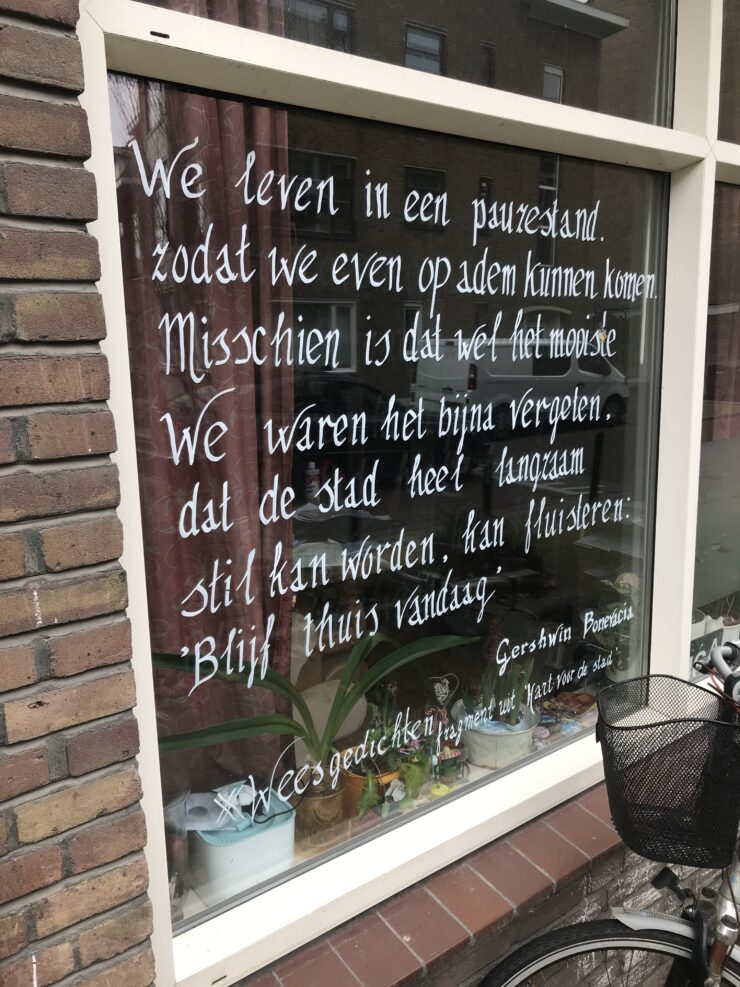 We leven in een pauzestand.
zodat we even op adem kunnen komen.
Misschien is dat wel het mooiste
We waren het bijna vergeten.
dat de stad heel langzaam
stil kan worden, kan fluisteren:
'Blijf thuis vandaag'
Gershwin Bonevacia
fragment uit 'Hart voor de stad'
*Weesgedichten